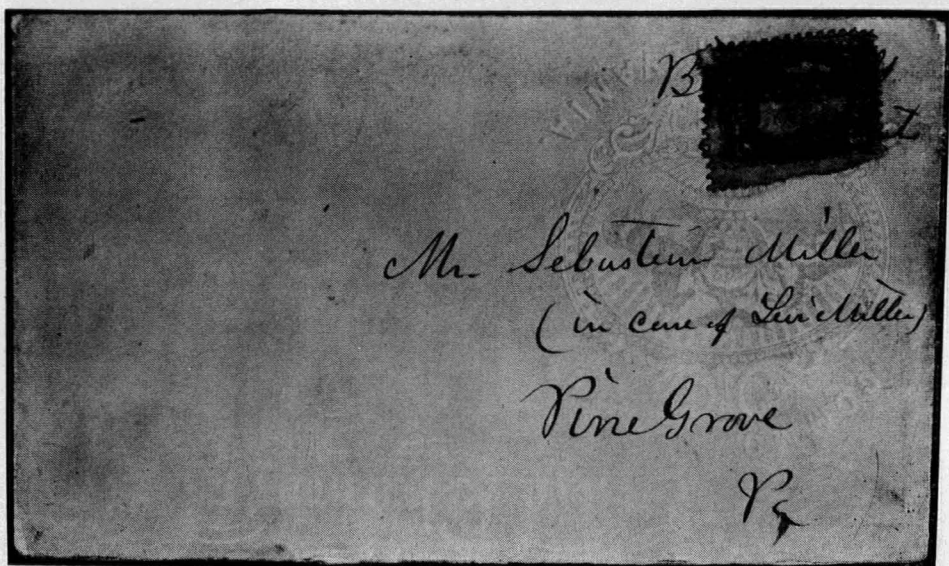 Mr. Sebastian Miller
(in care of Levi Miller)
Pine Grove
Pa